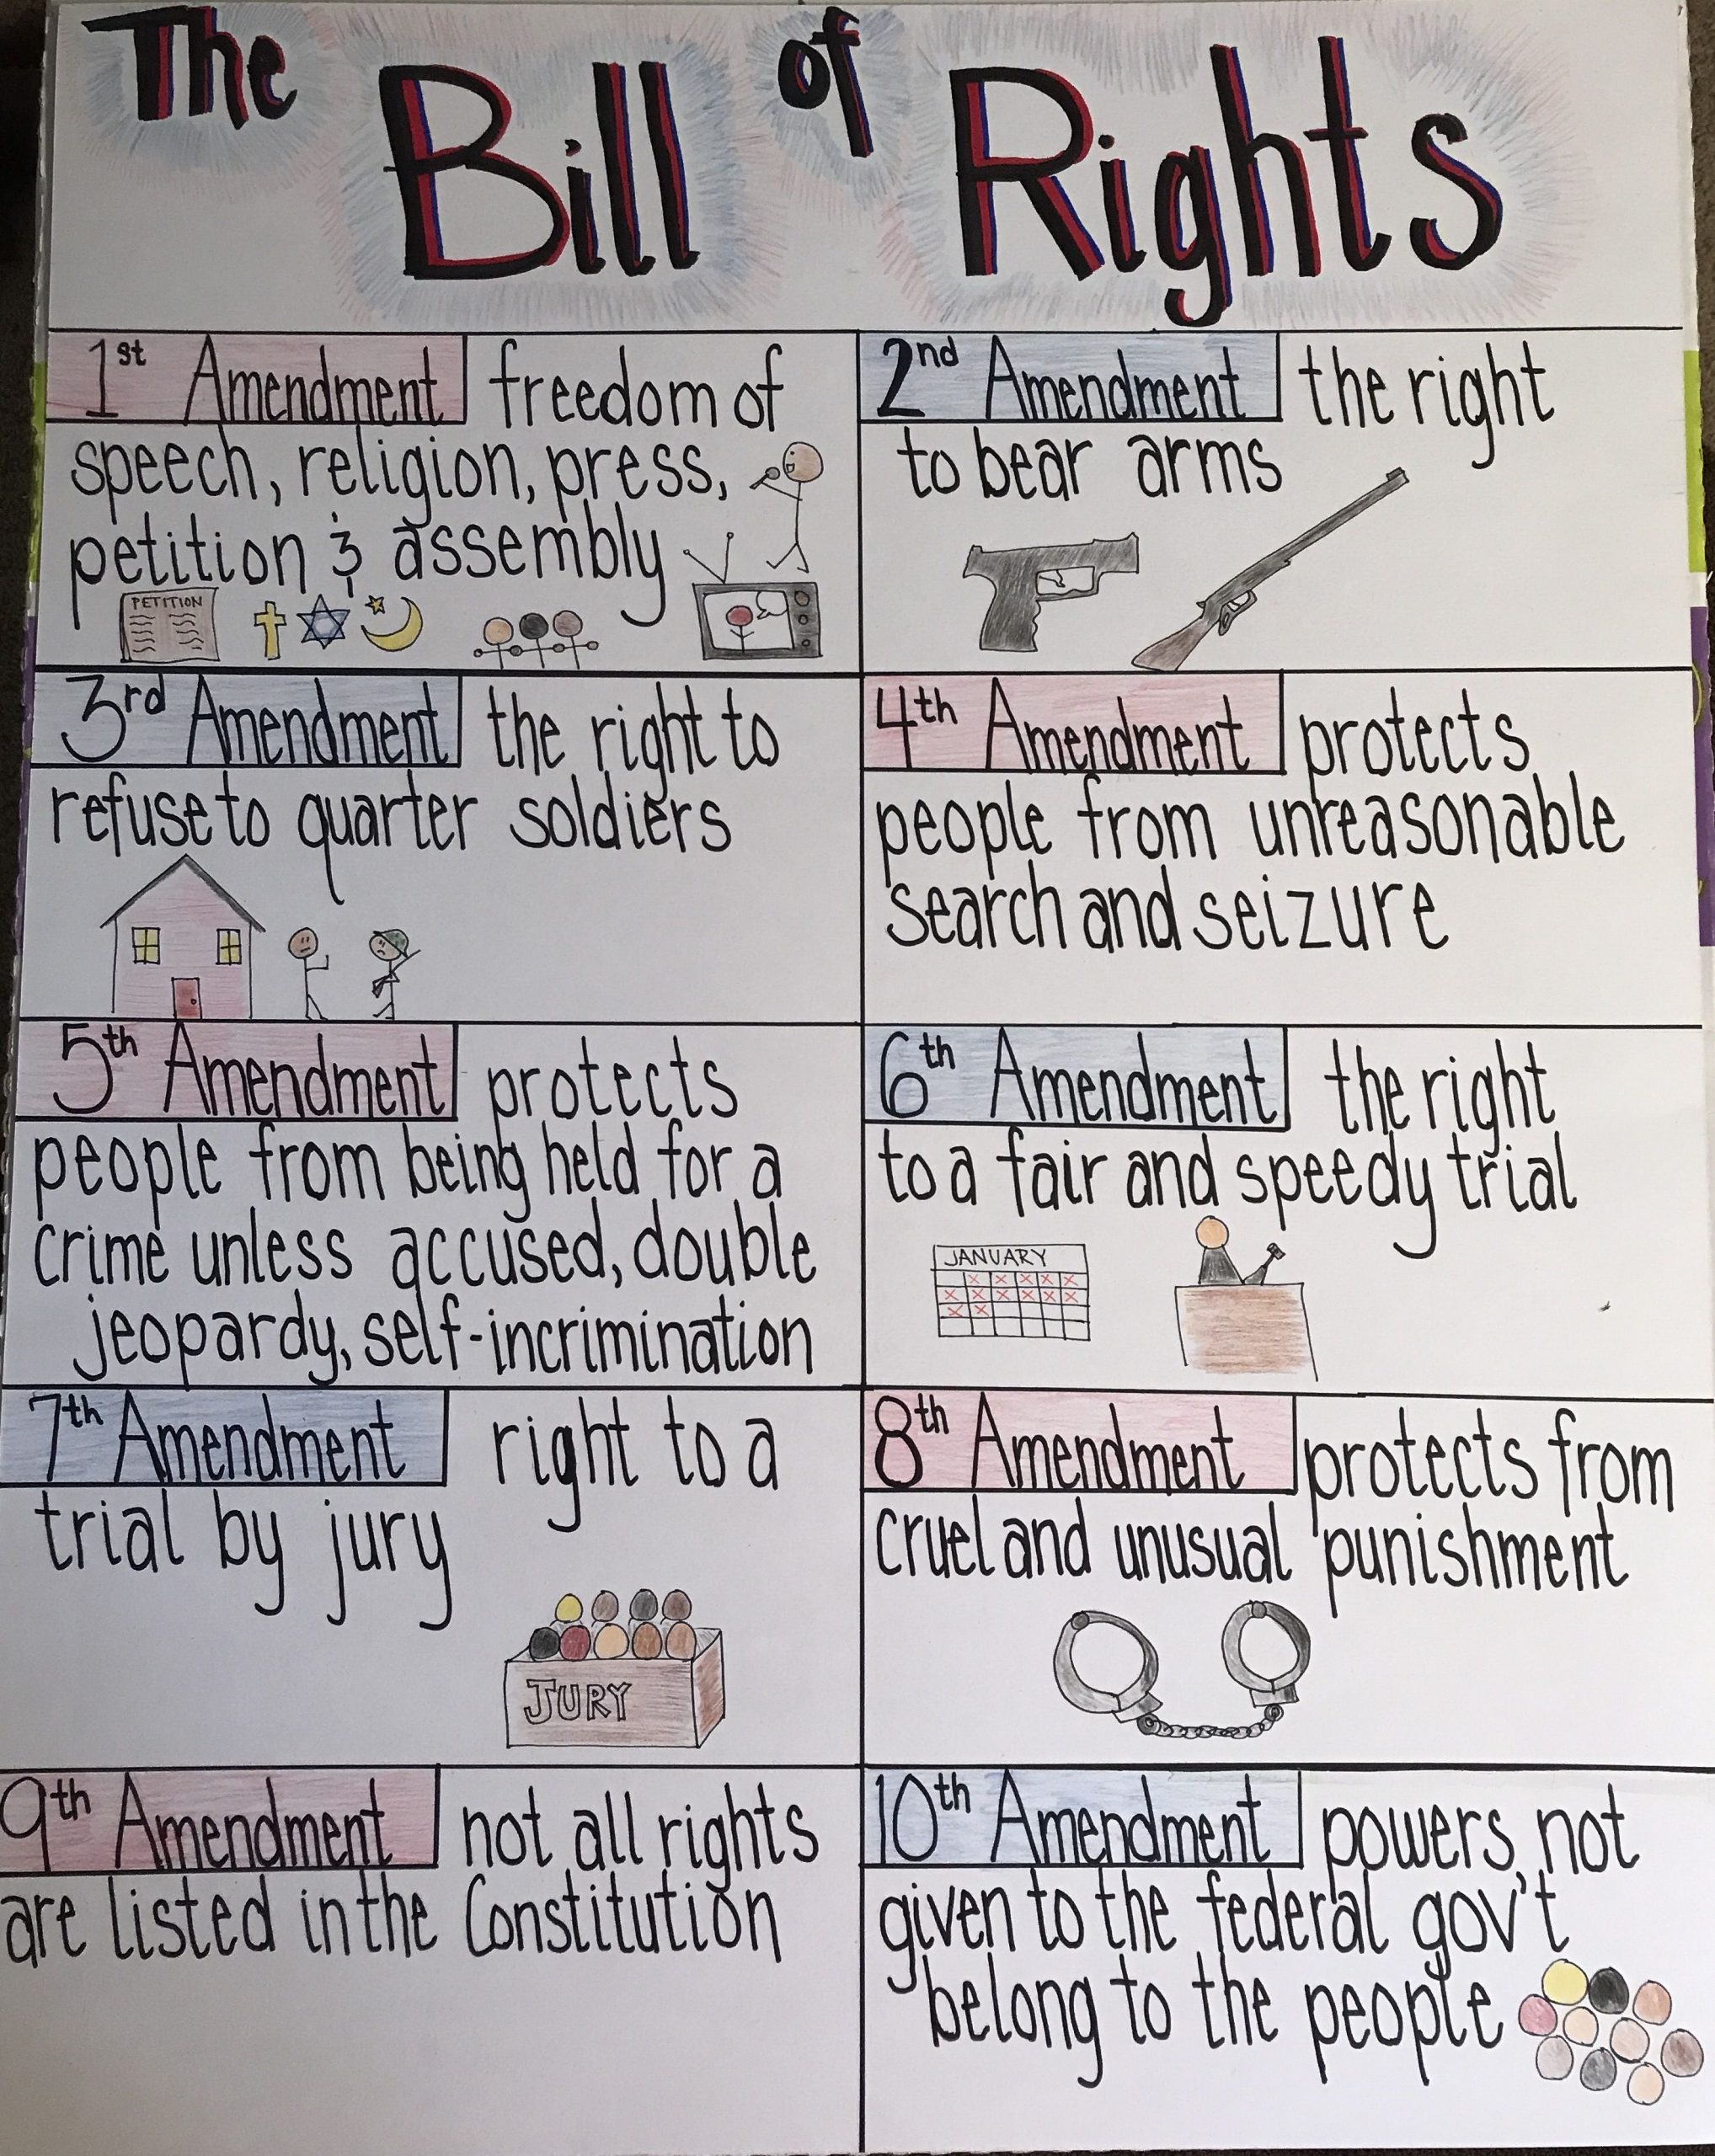 The Bill of Rights
1st Amendment freedom of
speech, religion, press,
petition & assembly
PETITION
2nd Amendment the right
to bear arms
3rd Amendment the right to
refuse to quarter soldiers
4th Amendment protects
people from unreasonable
search and seizure
5th Amendment protects
people from being held for a
crime unless accused, double
jeopardy, self-incrimination
6th Amendment the right
to a fair and speedy trial
JANUARY
7th Amendment right to a
trial by jury
JURY
8th Amendment protects from
cruel and unusual punishment
9th Amendment not all rights
are listed in the Constitution
10th Amendment powers not
given to the federal gov't
belong to the people